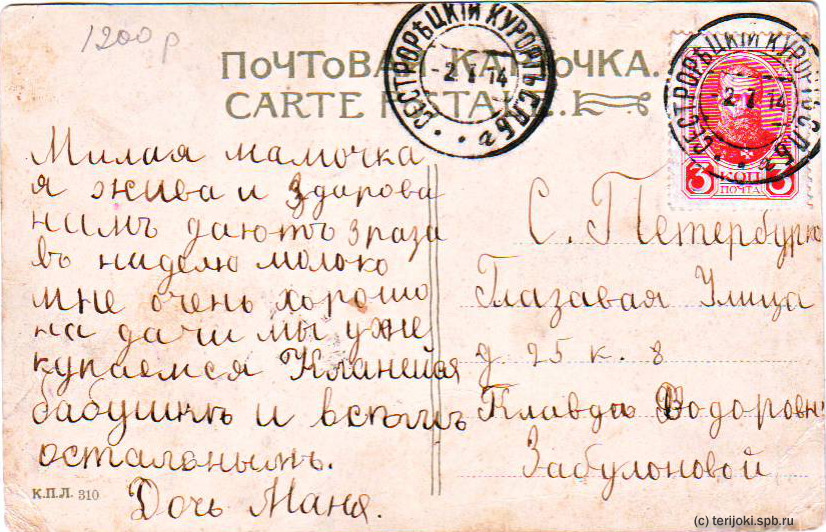 1200 р
ПОЧТОВАЯ КАРТОЧКА.
CARTE POSTALE.
СЕСТРОРѢЦКІЙ КУРОРТЪ С.П.Б.
-2 7 14
СЕСТРОРѢЦКІЙ КУРОРТЪ С.П.Б.
-2 7 14
3 КОП ПОЧТА 3
Милая мамочка
я жива и здарова
намъ даютъ 3 раза
въ наделю молоко
мне очень хорошо
на дачи мы уже
купаемся Кланейся
бабушкѣ и всѣмъ
остальнымъ.
Дочь Маня.
С. Петербург
Глазавая Улица
д 25 к. 8
Клавдѣ Ѳодоровн
Забулоновой
К.П.Л. 310
(c) terijoki.spb.ru